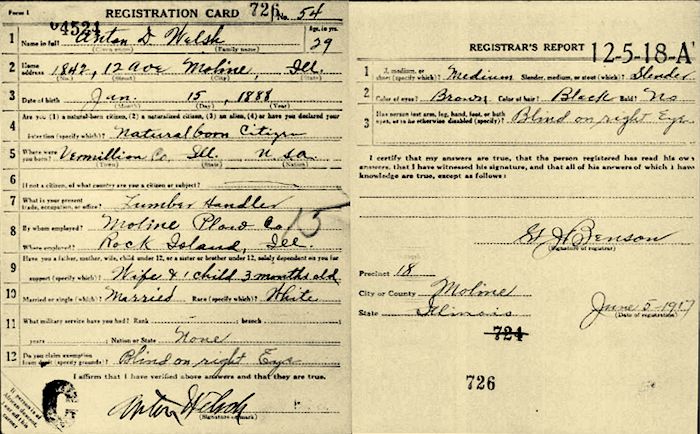 Form 1 REGISTRATION CARD 726 No. 54
04521
1 Name in full Anton D. Welsh Age, in yrs. 29
(Given name) (Family name)
2 Home address 1842, 12 Ave Moline, Ill.
(No.) (Street) (City) (State)
3 Date of birth Jan. 15, 1888
(Month) (Day) (Year)
4 Are you (1) a natural-born citizen, (2) a naturalized citizen, (3) an alien, (4) or have you declared your
intention (specify which)? Natural born Citizen
5 Where were you born? Vermillion Co. Ill. U S A
(Town) (State) (Nation)
6 If not a citizen, of what country are you a citizen or subject?
7 What is your present trade, occupation, or office? Lumber Handler
15
8 By whom employed? Moline Plow Co
Where employed? Rock Island, Ill.
9 Have you a father, mother, wife, child under 12, or a sister or brother under 12, solely dependent on you for
support (specify which)? Wife & 1 child 3 months old
10 Married or single (which)? Married Race (specify which)? White
11 What military service have you had? Rank ; branch ;
years ; Nation or State None
12 Do you claim exemption from draft (specify grounds)? Blind on right Eye
I affirm that I have verified above answers and that they are true.
If person is of African descent, tear off this corner
Anton Welsh
(Signature or mark)
REGISTRAR'S REPORT 12-5-18-A
1 medium, or short (specify which)? Medium Slender, medium, or stout (which)? Slender
2 Color of eyes? Brown Color of hair? Black Bald? No
3 Has person lost arm, leg, hand, foot, or both eyes, or is he otherwise disabled (specify)? Blind on right Eye
I certify that my answers are true, that the person registered has read his own
answers, that I have witnessed his signature, and that all of his answers of which I have
knowledge are true, except as follows:
Benson
(Signature of registrar)
Precinct 18
City or County Moline
State Illinois June 5-1917
(Date of registration)
724
726